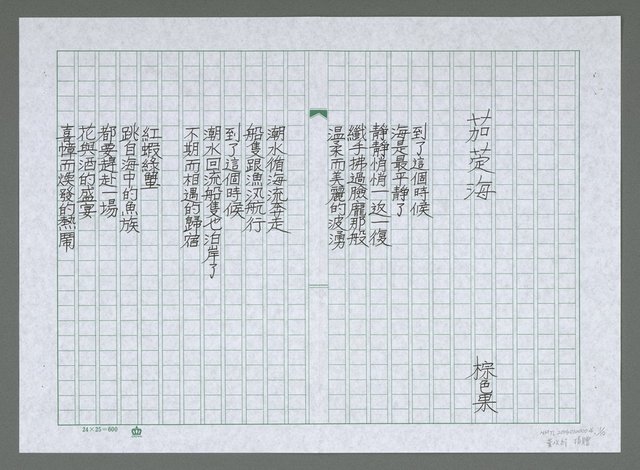 茄萣海
棕色果
到了這個時候
海是最平靜了
靜靜悄悄一返一復
纖手拂過臉龐那般
溫柔而美麗的波湧
潮水循海流奔走
船隻跟漁汛航行
到了這個時候
潮水回流船隻也泊岸了
不期而相遇的歸宿
紅蝦綠蟹
跳自海中的魚族
都要趕赴一場
花與酒的盛宴
喜幛而煥發的熱鬧
24×25=600